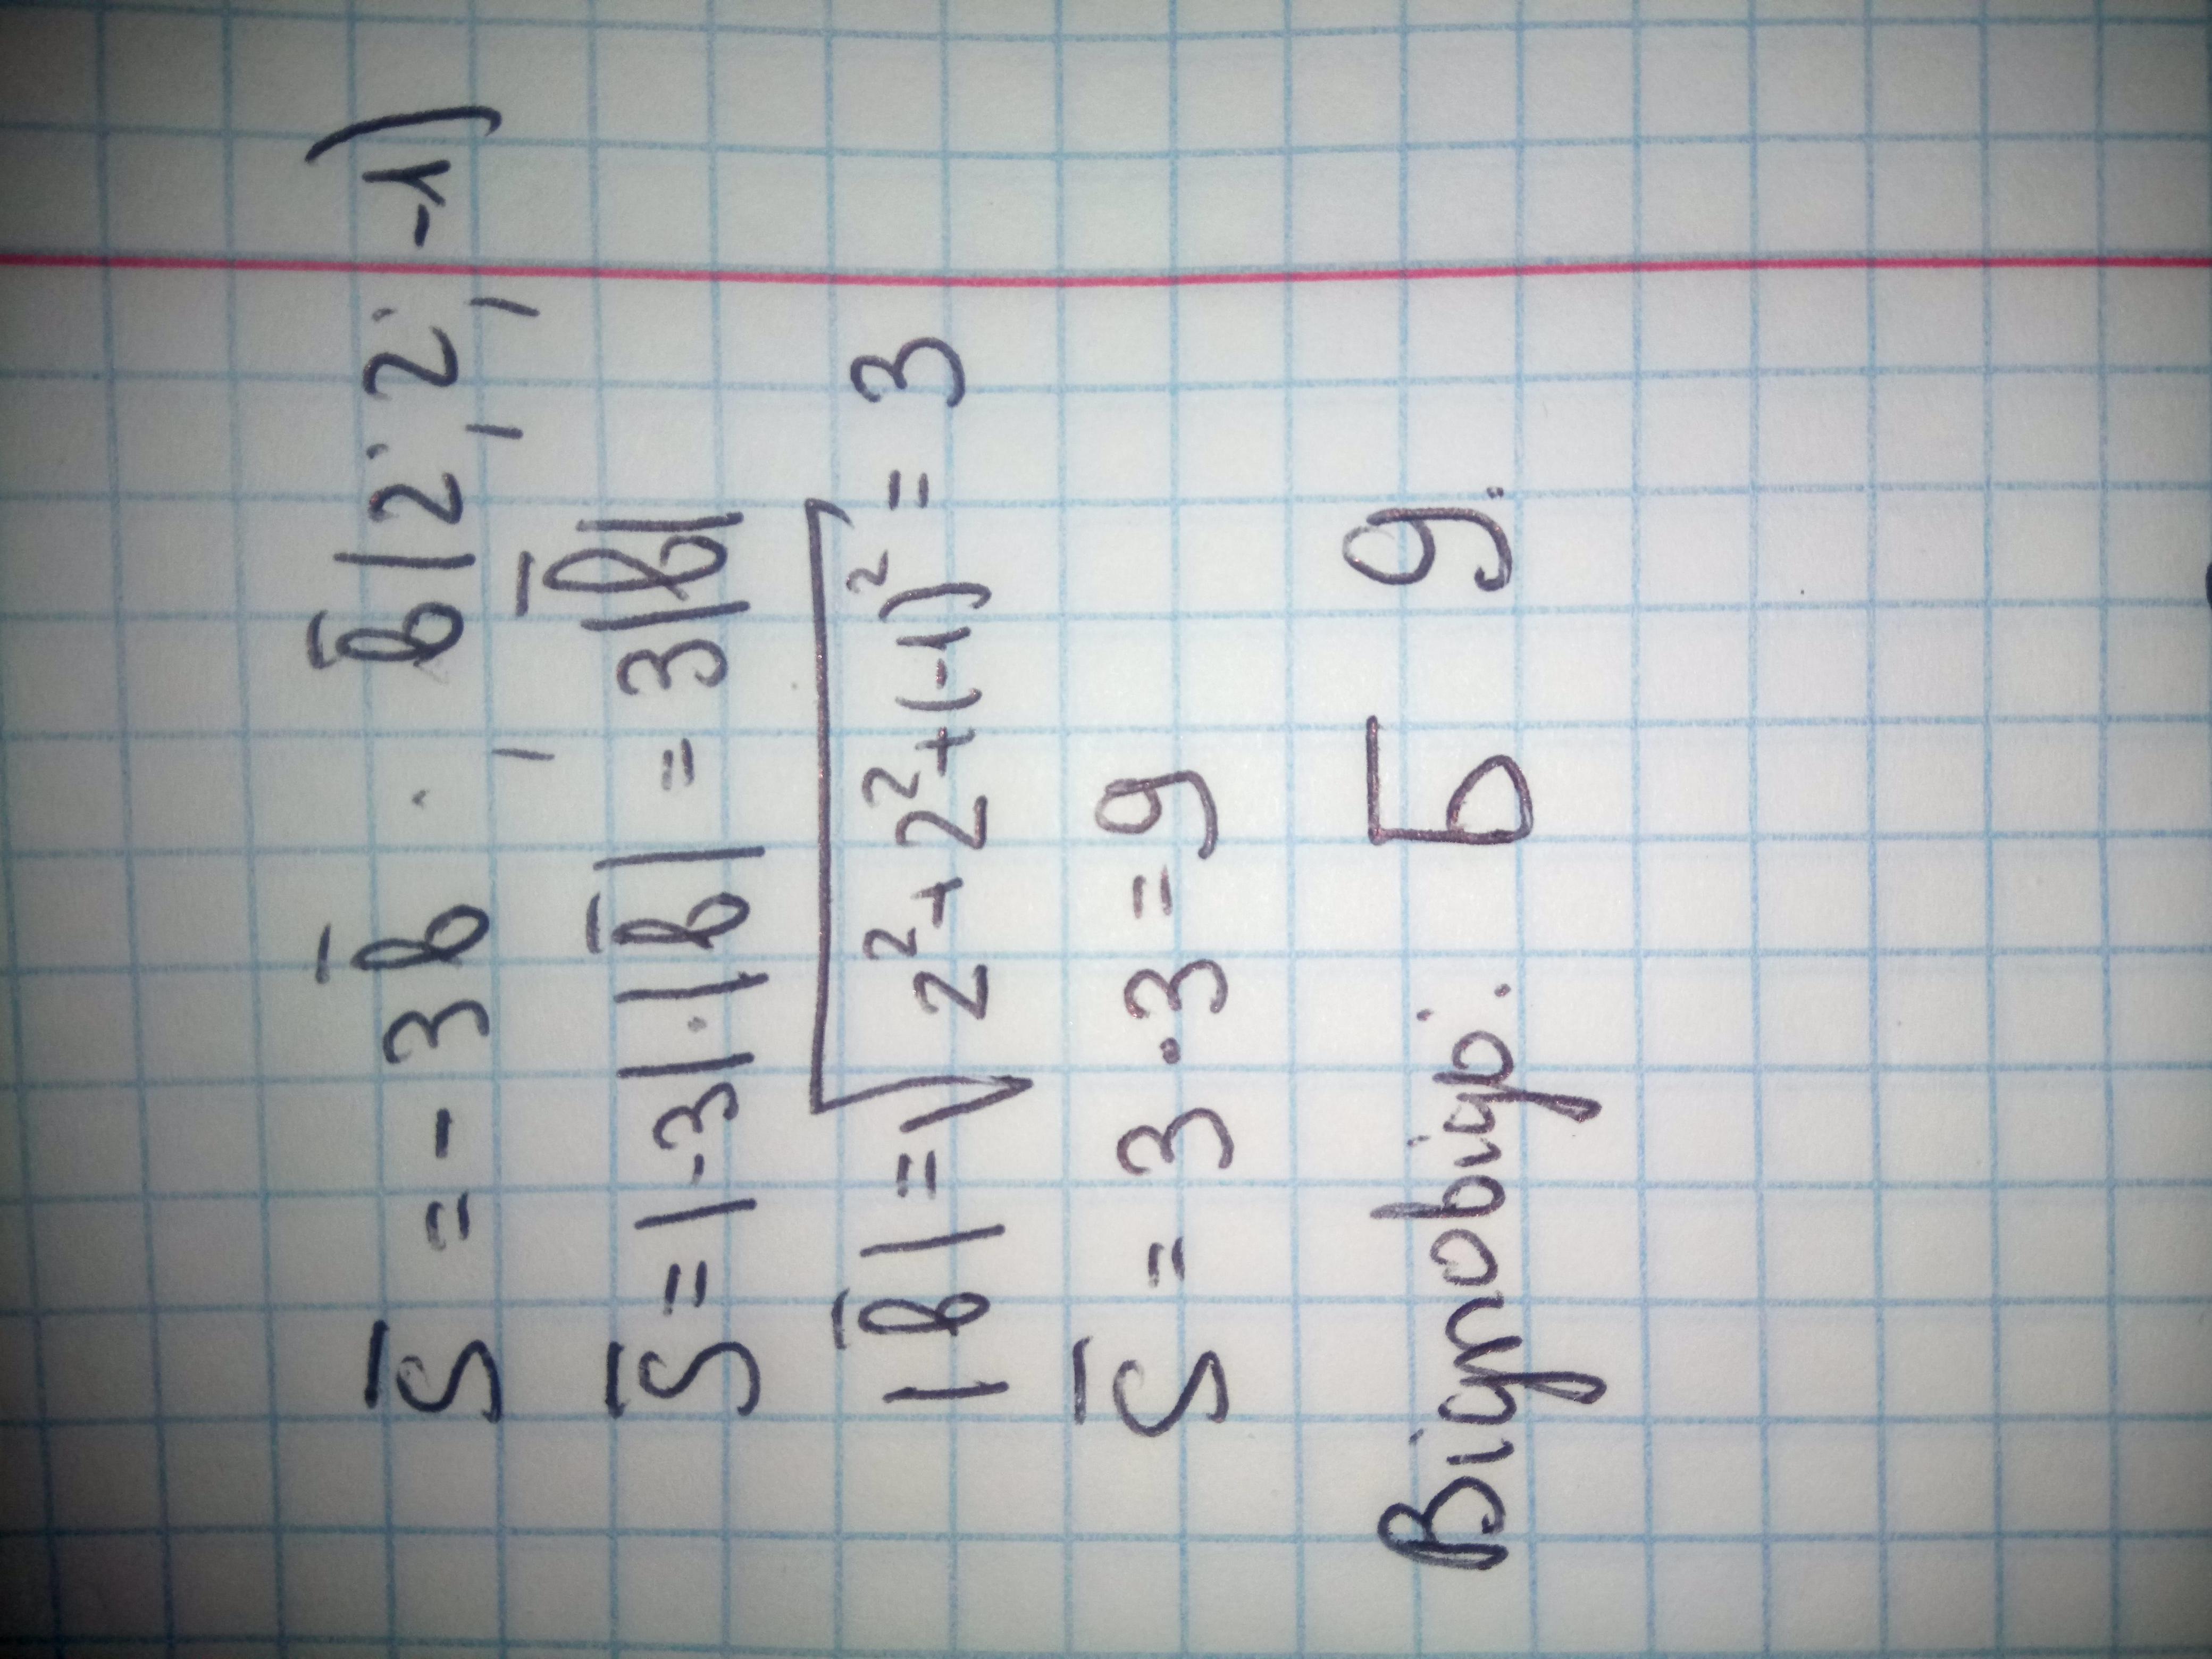 s̅ = - 3b̅, b̅(2; 2; -1)
s̅ = |-3|·|b̅| = 3|b̅|
|b̅| = √2²+2²+(-1)² = 3
s̅ = 3·3 = 9
Відповідь: Б 9.